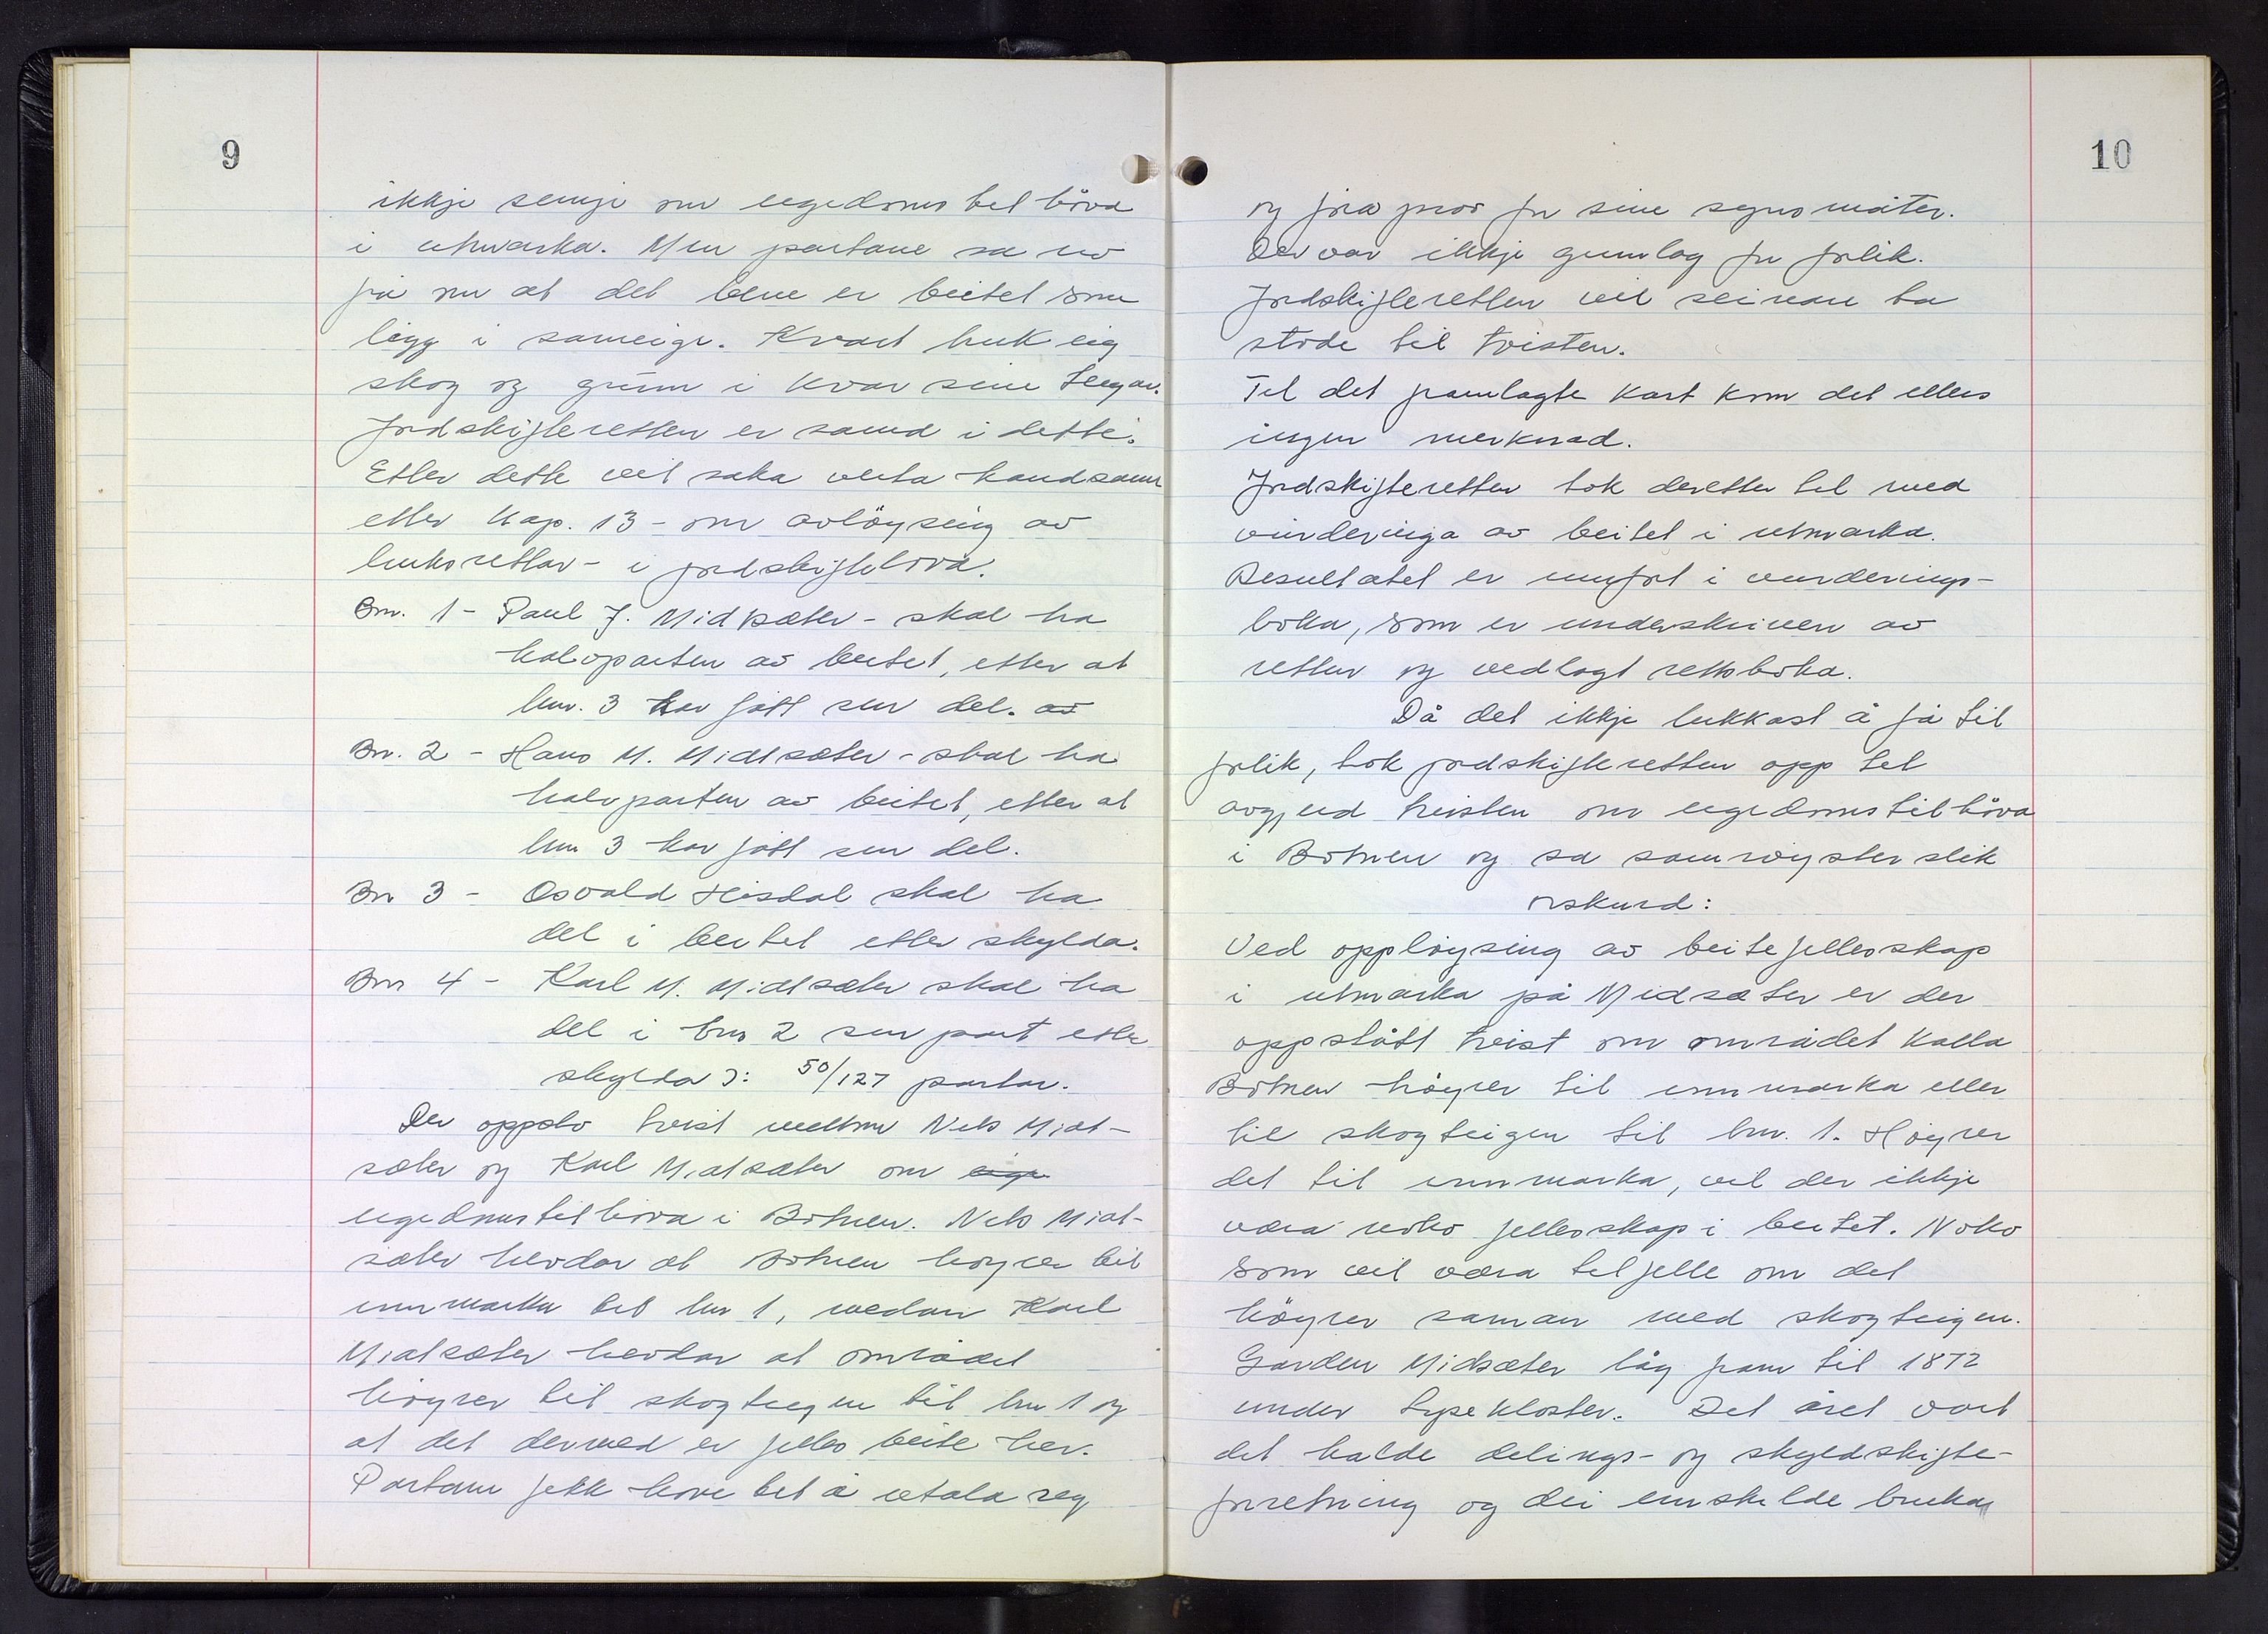 9
ikkje semje om eigedomstilhöva
i utmarka. Men partane sa no
frå om at det bere er beitet som
ligg i sameige. Kvart bruk eig
skog og grunn i kvar sine teigar.
Jordskifteretten er samd i dette.
Etter dette vil saka verta handsama
etter kap. 13 - om avlöysing av
bruksrettar - i jordskiftelova.
Bnr. 1 - Paul J. Midtsæter - skal ha
halvparten av beitet, etter at
bnr. 3 har fått sin del. av
Bnr. 2 - Hans M. Midtsæter - skal ha
halvparten av beitet, etter at
bnr 3 har fått sin del.
Bnr 3 - Osvald Hisdal skal ha
del i beitet etter skylda.
Bnr 4 - Karl M. Midtsæter skal ha
del i bnr 2 sin part etter
skylda ɔ: 50/127 partar.
Der oppsto tvist mellom Nils Midt-
sæter og Karl Midtsæter om eige
eigedomstilhöva i Botnen. Nils Midt-
sæter hevdar at Botnen höyrer til
innmarka til bnr 1, medan Karl
Midtsæter hevdar at området
höyrer til skogteigen til bnr 1 og
at det dermed er felles beite her.
Partane fekk höve til å uttala seg
10
og föra prov for sine synsmåter.
Der var ikkje grunnlag for forlik.
Jordskifteretten vil seinare ta
stode til tvisten.
Til det framlagte kart kom det ellers
ingen merknad.
Jordskifteretten tok deretter til med
vurderinga av beitet i utmarka.
Resultatet er innfört i vurderings-
boka, som er underskriven av
retten og vedlagt rettsboka.
Då det ikkje lukkast å få til
forlik, tok jordskifteretten opp til
avgjerd tvisten om eigedomstilhöva
i Botnen og sa samröystes slik
orskurd:
Ved opplöysing av beitefellesskap
i utmarka på Midtsæter er der
oppstått tvist om området kalla
Botnen höyrer til innmarka eller
til skogteigen til bnr. 1. Höyrer
det til innmarka, vil der ikkje
vera noko fellesskap i beitet. Noko
som vil vera tilfelle om det
höyrer saman med skogteigen.
Garden Midtsæter låg fram til 1872
under Lysekloster. Det året vart
det halde delings- og skyldskifte-
forretning og dei einskilde bruka